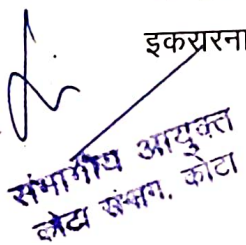 इकरारना
संभागीय आयुक्त
कोटा संभाग, कोटा